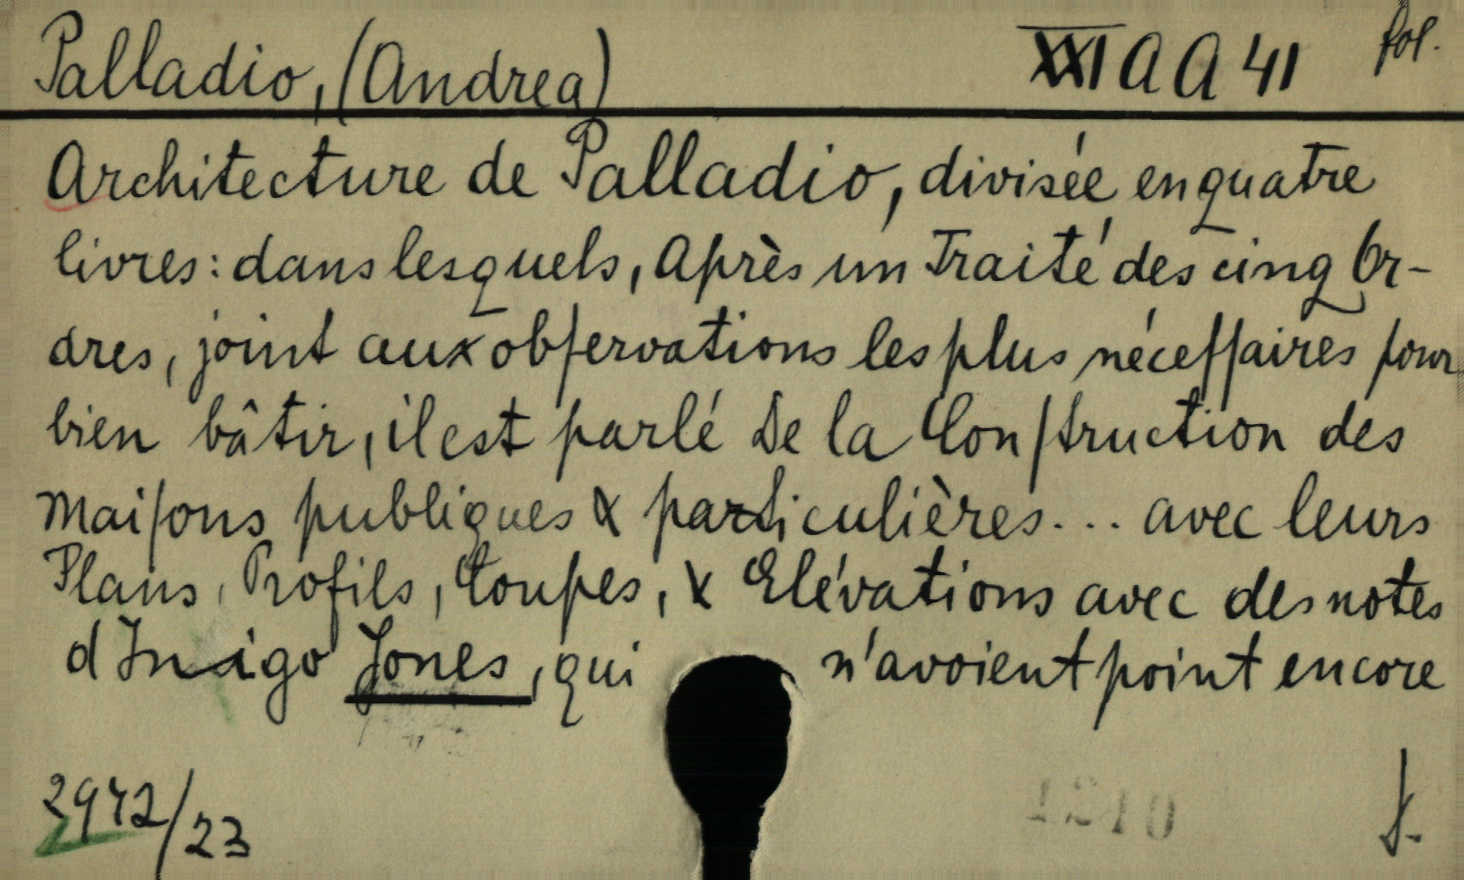 Palladio, (Andrea) XXI A A 41 fol.
Architecture de Palladio, divisée en quatre
livres: dans lesquels, Après un Traité des cinq Or-
dres, joint aux obſervations les plus néceſſaires pour
bien bâtir, il est parlé De la Conſtruction des
Maiſons publiques & particulières... avec leurs
Plans, Profils, Coupes, & Elévations avec des notes
d Inigo Jones, qui n'avoient point encore
2942/23